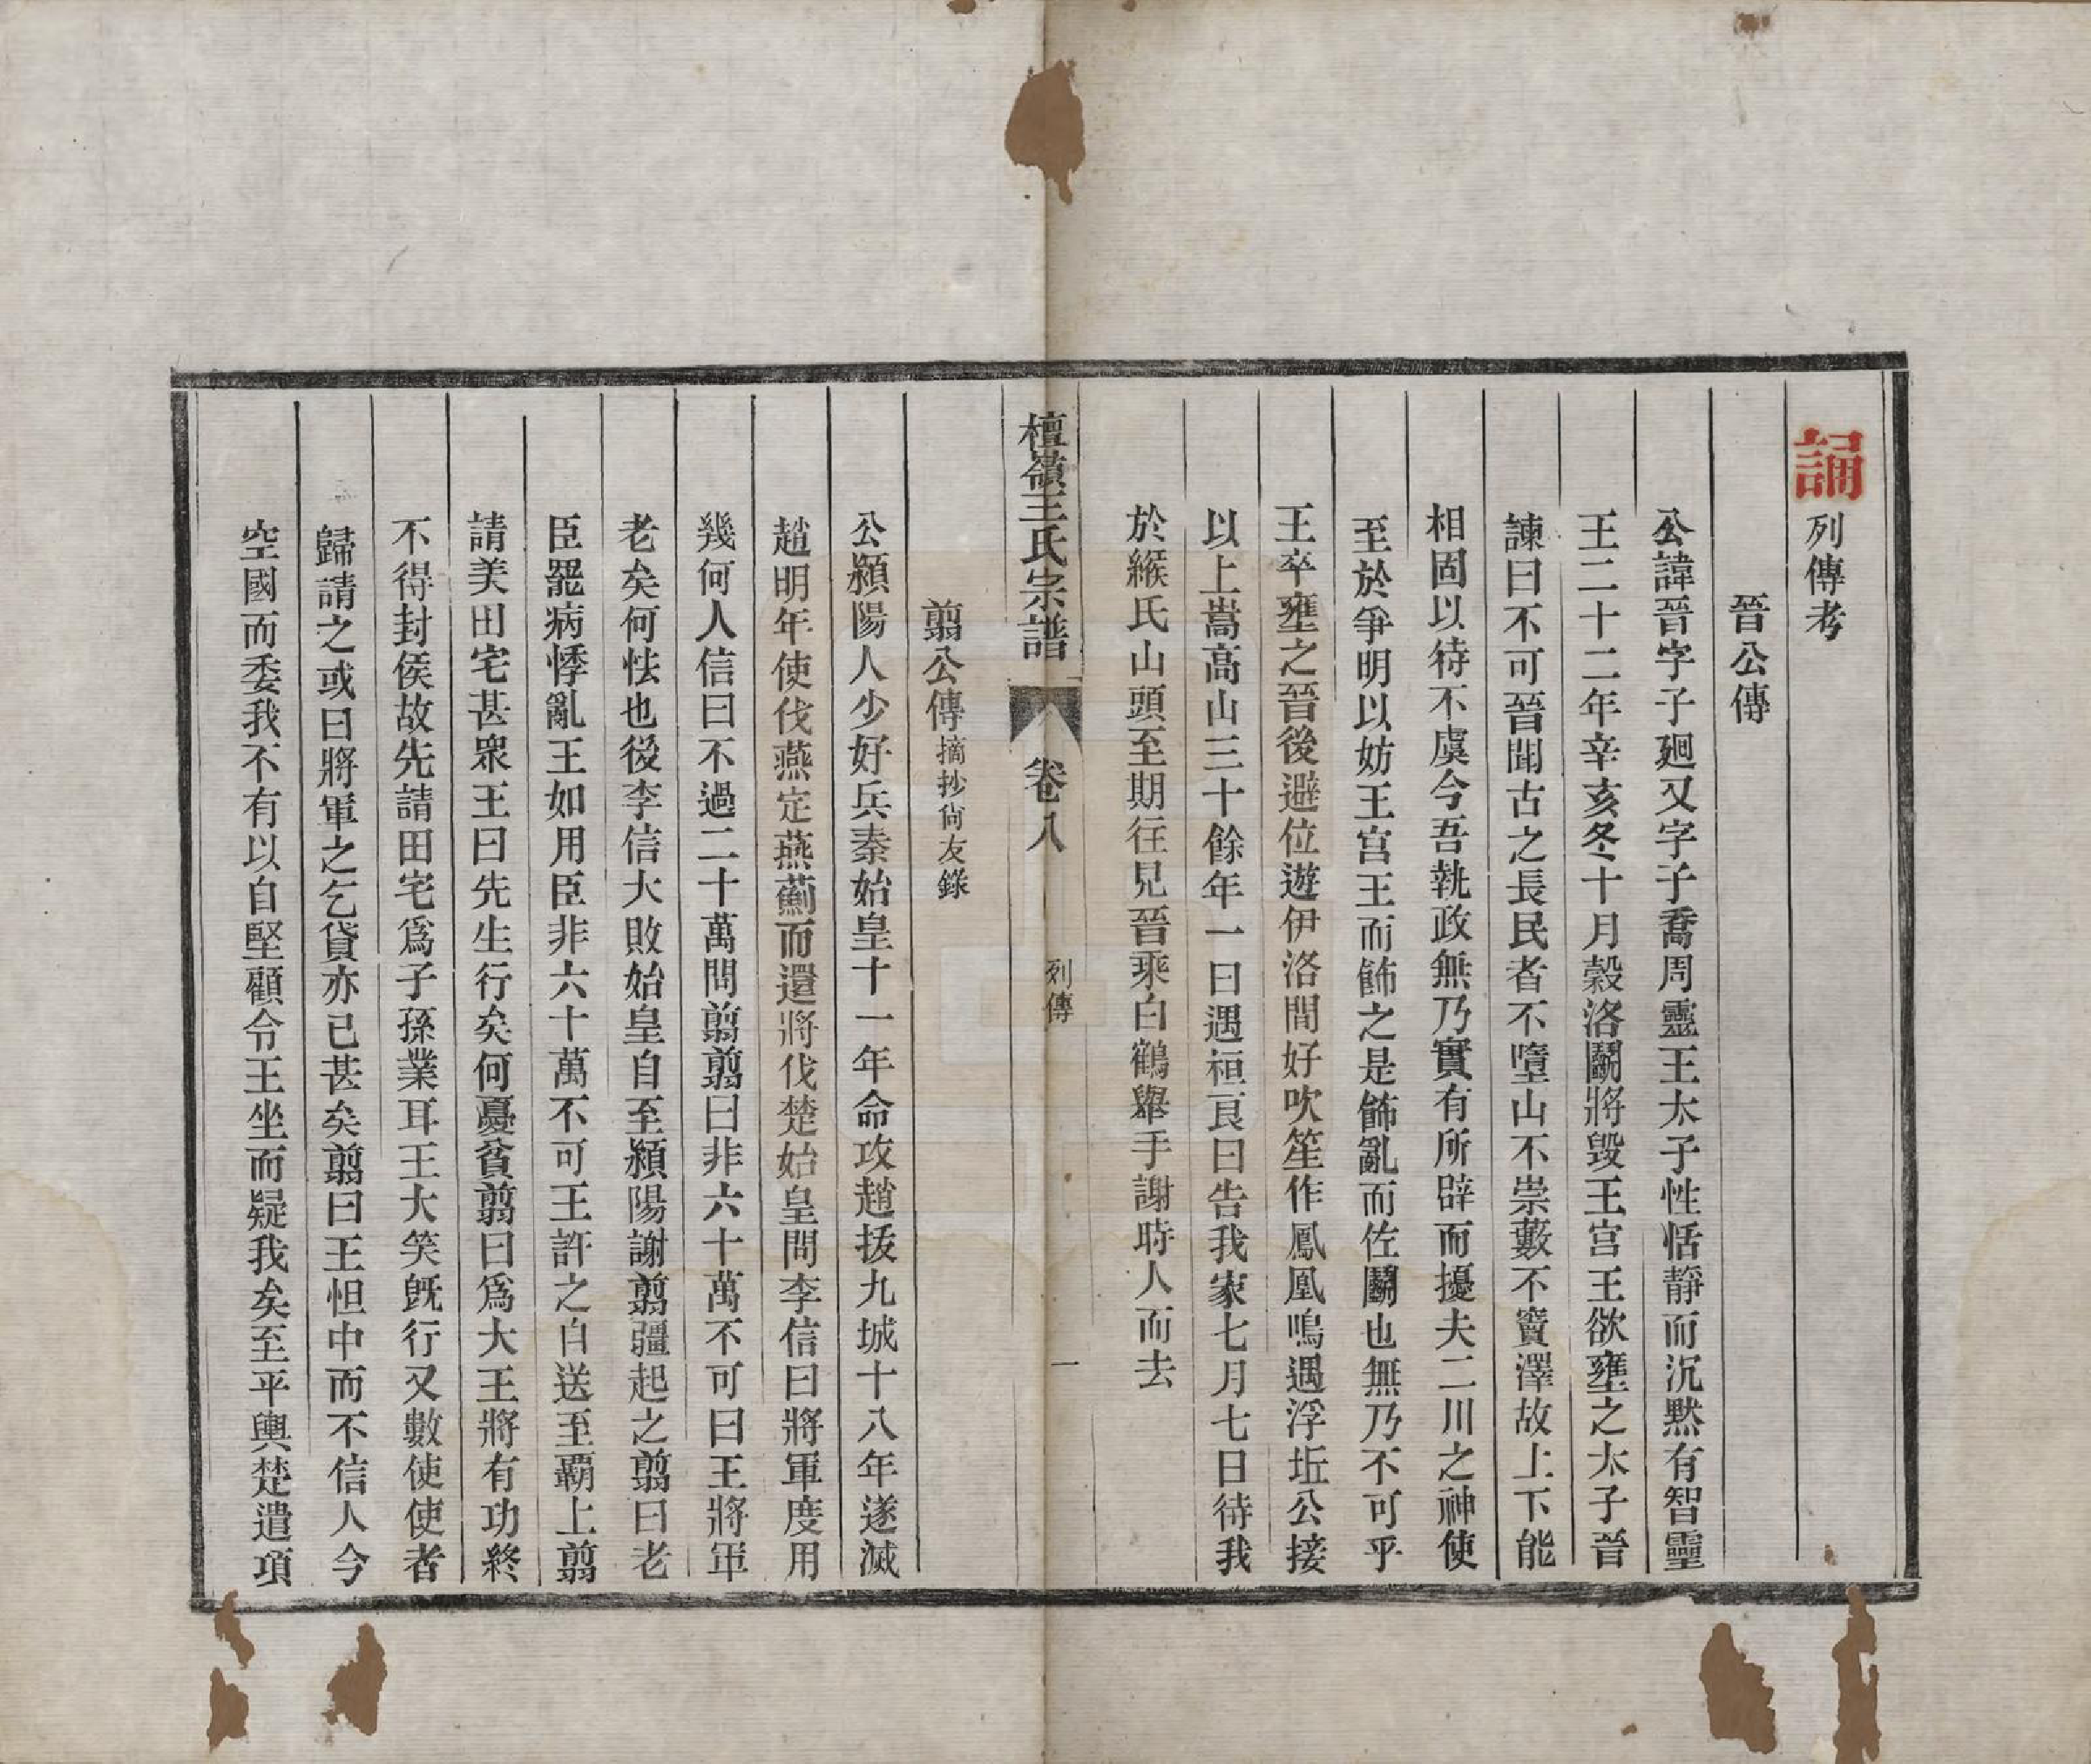 誦
列傳考
晉公傳
公諱晉字子廻又字子喬周靈王太子性恬靜而沉默有智靈
王二十二年辛亥冬十月穀洛鬭將毀王宮王欲壅之太子晉
諫曰不可晉聞古之長民者不墮山不崇藪不竇澤故上下能
相固以待不虞今吾執政無乃實有所辟而擾夫二川之神使
至於爭明以妨王宮王而飾之是飾亂而佐鬭也無乃不可乎
王卒壅之晉後避位遊伊洛間好吹笙作鳳凰鳴遇浮坵公接
以上嵩高山三十餘年一日遇桓良曰告我家七月七日待我
於緱氏山頭至期往見晉乘白鶴舉手謝時人而去
檀嶺王氏宗譜 卷八 列傳 一
翦公傳摘抄尙友錄
公潁陽人少好兵秦始皇十一年命攻趙拔九城十八年遂滅
趙明年使伐燕定燕薊而還將伐楚始皇問李信曰將軍度用
幾何人信曰不過二十萬問翦翦曰非六十萬不可曰王將軍
老矣何怯也後李信大敗始皇自至潁陽謝翦彊起之翦曰老
臣罷病悸亂王如用臣非六十萬不可王許之自送至覇上翦
請美田宅甚眾王曰先生行矣何憂貧翦曰爲大王將有功終
不得封侯故先請田宅爲子孫業耳王大笑旣行又數使使者
歸請之或曰將軍之乞貸亦已甚矣翦曰王怚中而不信人今
空國而委我不有以自堅顧令王坐而疑我矣至平輿楚遣項